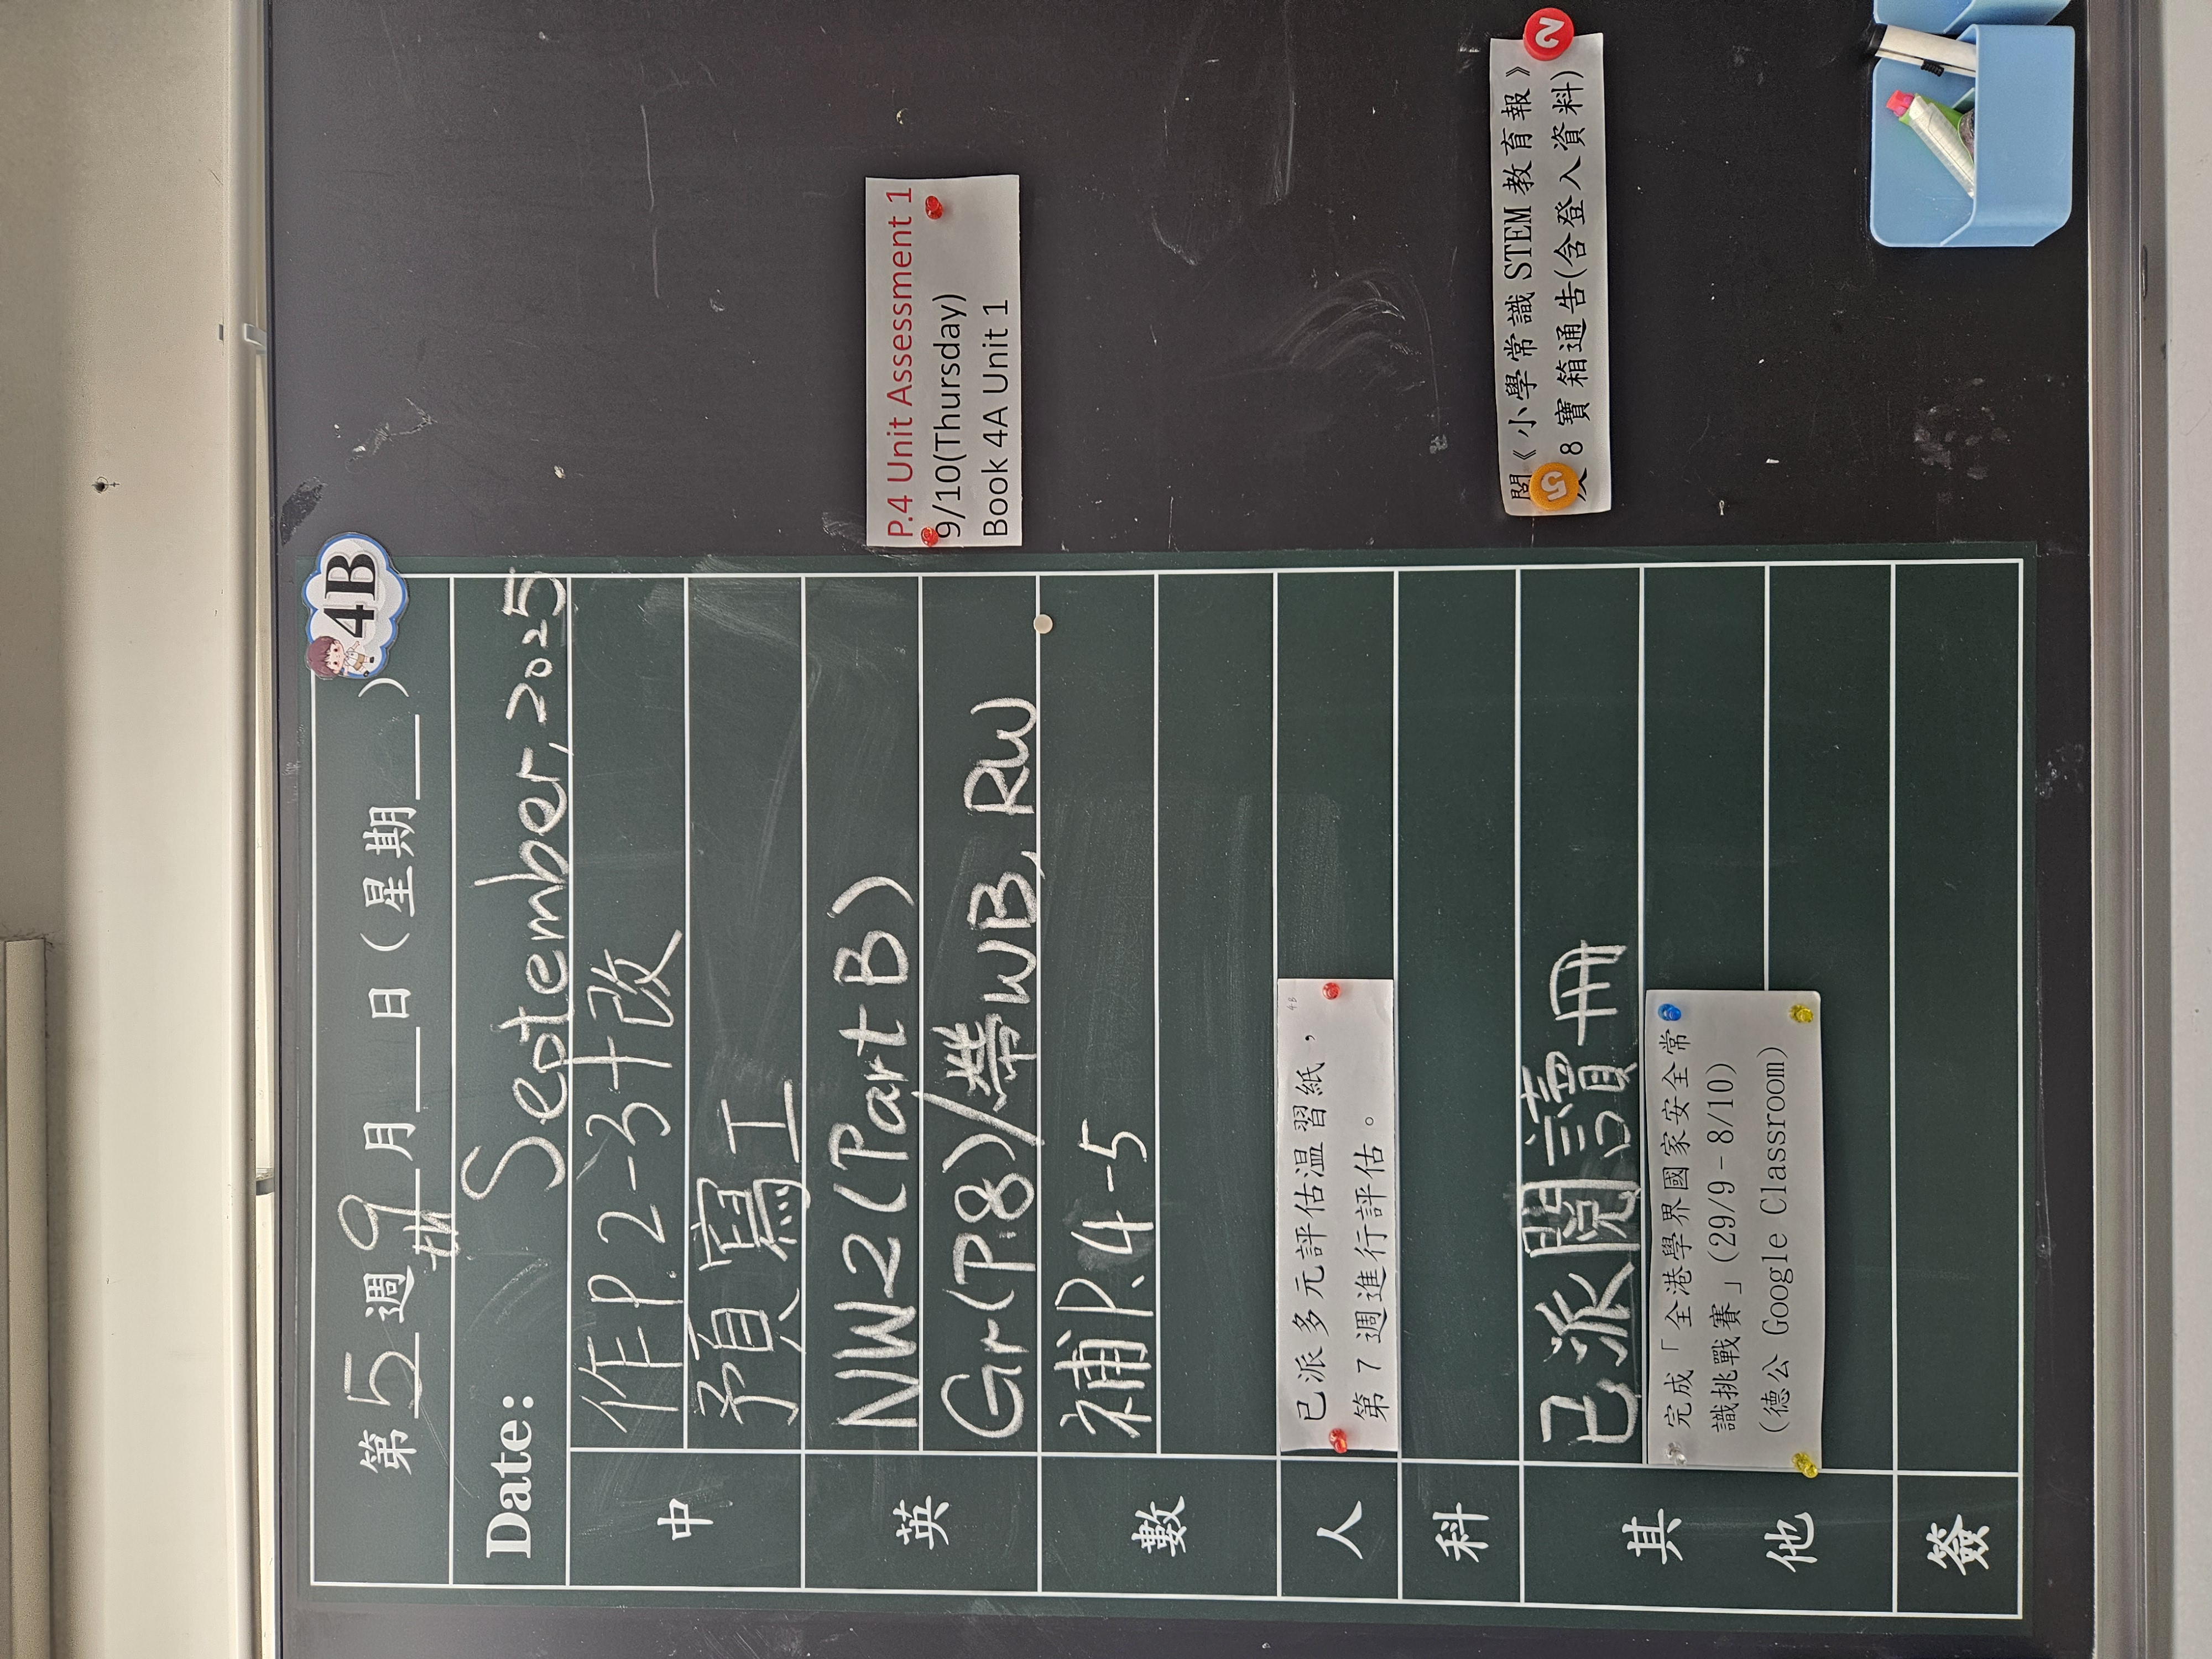 4B
第5週9月 日(星期 )
th
Date: September, 2025
中 作P.2-3+改
預寫工
英 NW2(Part B)
Gr(P.8)/帶WB, RW
數 補P.4-5
人 已派多元評估温習紙，
第7週進行評估。
科
其他 已派閱讀冊
完成「全港學界國家安全常
識挑戰賽」(29/9-8/10)
(德公 Google Classroom)
簽
P.4 Unit Assessment 1
9/10(Thursday)
Book 4A Unit 1
閱《小學常識STEM教育報》
8寶箱通告(含登入資料)
5
2